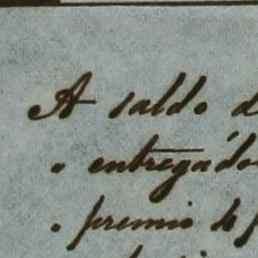 A saldo d
" entregádo
" premio de